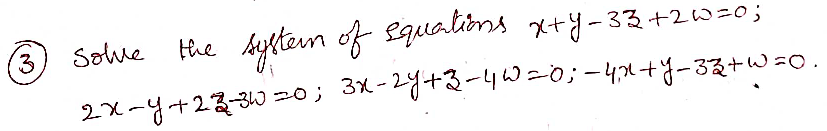 ③ Solve the system of equations x+y-3z+2w=0;
2x-y+2z-3w=0; 3x-2y+z-4w=0; -4x+y-3z+w=0.